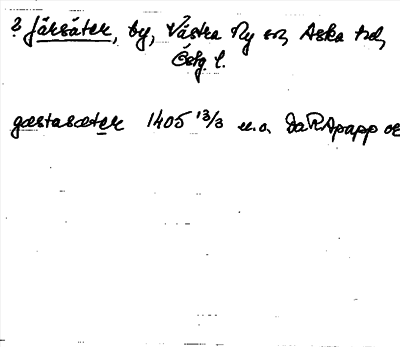 ? Järsäter, by, Västra Ny sn, Aska hd,
Östg. l.
gæstasæter 1405 13/3 u.o. DaRApapp or